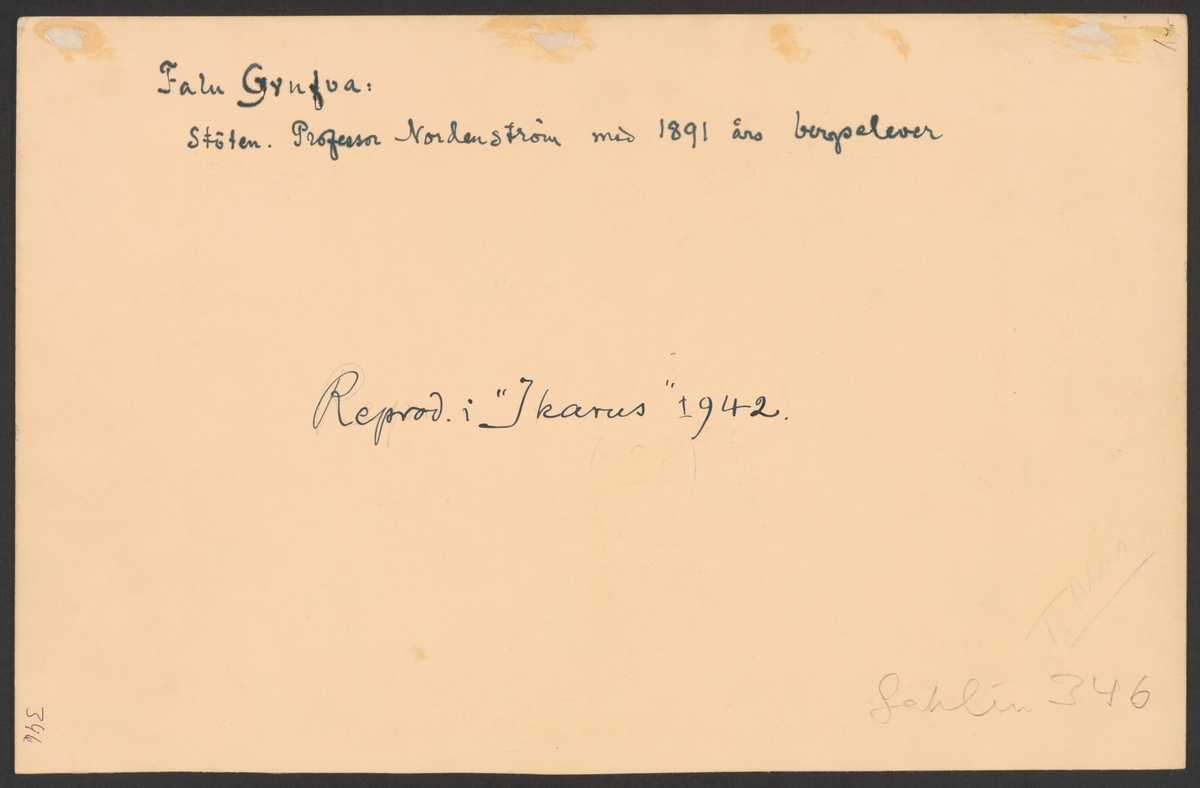 Falu Grufva:
Stöten. Professor Nordenström med 1891 års bergselever
Reprod. i "Ikarus" 1942.
Sahlin 346
346